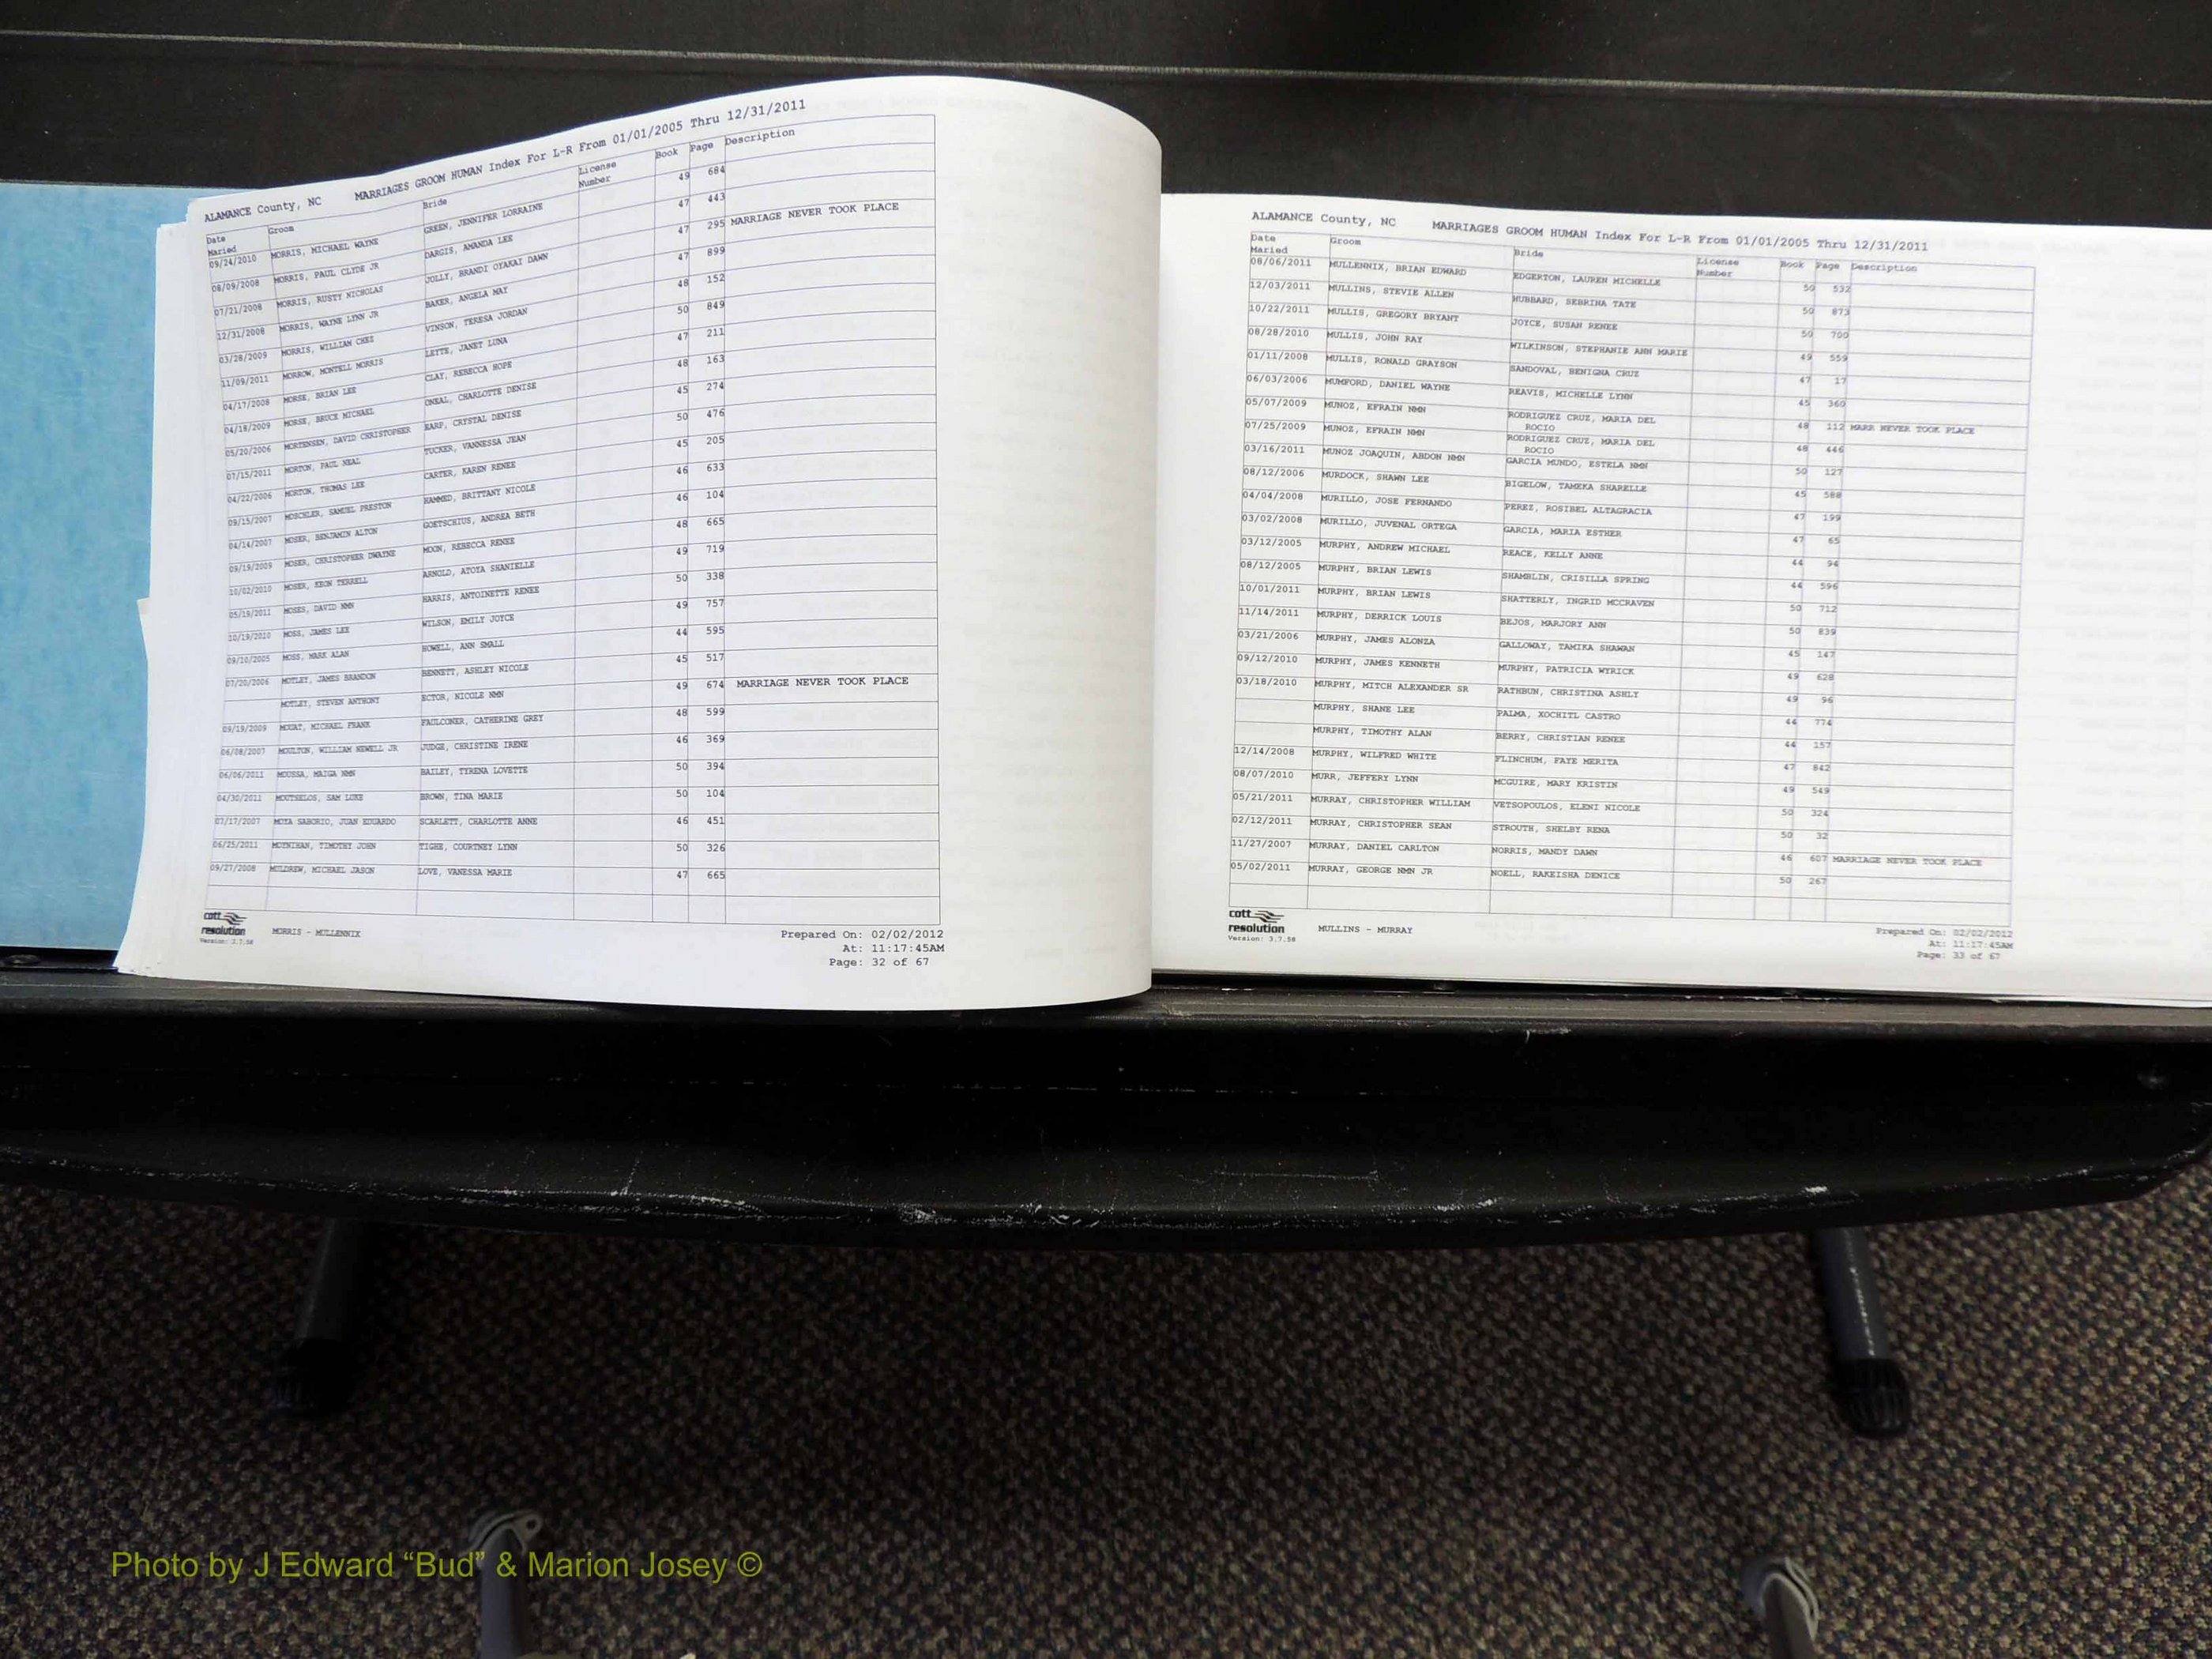 ALAMANCE County, NC MARRIAGES GROOM HUMAN Index For L-R From 01/01/2005 Thru 12/31/2011
Date Maried Groom Bride License Number Book Page Description
09/24/2010 MORRIS, MICHAEL WAYNE GREEN, JENNIFER LORRAINE 49 684
08/09/2008 MORRIS, PAUL CLYDE JR DARGIS, AMANDA LEE 47 443
07/21/2008 MORRIS, RUSTY NICHOLAS JOLLY, BRANDI OYAKAI DAWN 47 295 MARRIAGE NEVER TOOK PLACE
12/31/2008 MORRIS, WAYNE LYNN JR BAKER, ANGELA MAY 47 899
03/28/2009 MORRIS, WILLIAM CHEZ VINSON, TERESA JORDAN 48 152
11/09/2011 MORROW, MONTELL MORRIS LEITE, JANET LUNA 50 849
04/17/2008 MORSE, BRIAN LEE CLAY, REBECCA HOPE 47 211
04/18/2009 MORSE, BRUCE MICHAEL ONEAL, CHARLOTTE DENISE 48 163
05/20/2006 MORTENSEN, DAVID CHRISTOPHER EARP, CRYSTAL DENISE 45 274
07/15/2011 MORTON, PAUL NEAL TUCKER, VANNESSA JEAN 50 476
04/22/2006 MORTON, THOMAS LEE CARTER, KAREN RENEE 45 205
09/15/2007 MOSCHLER, SAMUEL PRESTON HAMMED, BRITTANY NICOLE 46 633
04/14/2007 MOSER, BENJAMIN ALTON GOETSCHIUS, ANDREA BETH 46 104
09/19/2009 MOSER, CHRISTOPHER DWAYNE MOON, REBECCA RENEE 48 665
10/02/2010 MOSER, KEON TERRELL ARNOLD, ATOYA SHANIELLE 49 719
05/19/2011 MOSES, DAVID NMN HARRIS, ANTOINETTE RENEE 50 338
10/19/2010 MOSS, JAMES LEE WILSON, EMILY JOYCE 49 757
09/10/2005 MOSS, MARK ALAN HOWELL, ANN SMALL 44 595
07/20/2006 MOTLEY, JAMES BRANDON BENNETT, ASHLEY NICOLE 45 517
MOTLEY, STEVEN ANTHONY ECTOR, NICOLE NMN 49 674 MARRIAGE NEVER TOOK PLACE
09/19/2009 MOUAT, MICHAEL FRANK FAULCONER, CATHERINE GREY 48 599
06/08/2007 MOULTON, WILLIAM NEWELL JR JUDGE, CHRISTINE IRENE 46 369
06/06/2011 MOUSSA, MAIGA NMN BAILEY, TYRENA LOVETTE 50 394
04/30/2011 MOUTSELOS, SAM LUKE BROWN, TINA MARIE 50 104
07/17/2007 MOYA SABORIO, JUAN EDUARDO SCARLETT, CHARLOTTE ANNE 46 451
06/25/2011 MOYNIHAN, TIMOTHY JOHN TIGHE, COURTNEY LYNN 50 326
09/27/2008 MULDREW, MICHAEL JASON LOVE, VANESSA MARIE 47 665
cott resolution
Version: 3.7.58
MORRIS - MULLENNIX
Prepared On: 02/02/2012
At: 11:17:45AM
Page: 32 of 67
ALAMANCE County, NC MARRIAGES GROOM HUMAN Index For L-R From 01/01/2005 Thru 12/31/2011
Date Maried Groom Bride License Number Book Page Description
08/06/2011 MULLENNIX, BRIAN EDWARD EDGERTON, LAUREN MICHELLE 50 532
12/03/2011 MULLINS, STEVIE ALLEN HUBBARD, SEBRINA TATE 50 873
10/22/2011 MULLIS, GREGORY BRYANT JOYCE, SUSAN RENEE 50 700
08/28/2010 MULLIS, JOHN RAY WILKINSON, STEPHANIE ANN MARIE 49 559
01/11/2008 MULLIS, RONALD GRAYSON SANDOVAL, BENIGNA CRUZ 47 17
06/03/2006 MUMFORD, DANIEL WAYNE REAVIS, MICHELLE LYNN 45 360
05/07/2009 MUNOZ, EFRAIN NMN RODRIGUEZ CRUZ, MARIA DEL ROCIO 48 112 MARR NEVER TOOK PLACE
07/25/2009 MUNOZ, EFRAIN NMN RODRIGUEZ CRUZ, MARIA DEL ROCIO 48 446
03/16/2011 MUNOZ JOAQUIN, ABDON NMN GARCIA MUNDO, ESTELA NMN 50 127
08/12/2006 MURDOCK, SHAWN LEE BIGELOW, TAMEKA SHARELLE 45 588
04/04/2008 MURILLO, JOSE FERNANDO PEREZ, ROSIBEL ALTAGRACIA 47 199
03/02/2008 MURILLO, JUVENAL ORTEGA GARCIA, MARIA ESTHER 47 65
03/12/2005 MURPHY, ANDREW MICHAEL REACE, KELLY ANNE 44 94
08/12/2005 MURPHY, BRIAN LEWIS SHAMBLIN, CRISILLA SPRING 44 596
10/01/2011 MURPHY, BRIAN LEWIS SHATTERLY, INGRID MCCRAVEN 50 712
11/14/2011 MURPHY, DERRICK LOUIS BEJOS, MARJORY ANN 50 839
03/21/2006 MURPHY, JAMES ALONZA GALLOWAY, TAMIKA SHAWAN 45 147
09/12/2010 MURPHY, JAMES KENNETH MURPHY, PATRICIA WYRICK 49 628
03/18/2010 MURPHY, MITCH ALEXANDER SR RATHBUN, CHRISTINA ASHLY 49 96
MURPHY, SHANE LEE PALMA, XOCHITL CASTRO 44 774
MURPHY, TIMOTHY ALAN BERRY, CHRISTIAN RENEE 44 157
12/14/2008 MURPHY, WILFRED WHITE FLINCHUM, FAYE MERITA 47 842
08/07/2010 MURR, JEFFERY LYNN MCGUIRE, MARY KRISTIN 49 549
05/21/2011 MURRAY, CHRISTOPHER WILLIAM VETSOPOULOS, ELENI NICOLE 50 324
02/12/2011 MURRAY, CHRISTOPHER SEAN STROUTH, SHELBY RENA 50 32
11/27/2007 MURRAY, DANIEL CARLTON NORRIS, MANDY DAWN 46 607 MARRIAGE NEVER TOOK PLACE
05/02/2011 MURRAY, GEORGE NMN JR NOELL, RAKEISHA DENICE 50 267
cott resolution
Version: 3.7.58
MULLINS - MURRAY
Prepared On: 02/02/2012
At: 11:17:45AM
Page: 33 of 67
Photo by J Edward “Bud” & Marion Josey ©